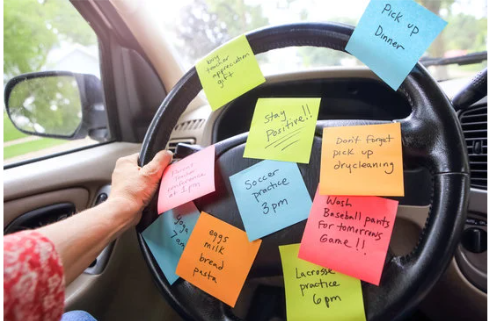 Pick up
Dinner
Buy teacher
appreciation
gift
Stay
Positive!!
Don't Forget
pick up
drycleaning
Parent
Teacher
conference
at 1pm
Soccer
practice
3pm
Wash
Baseball pants
For tomorrows
Game!!
eggs
milk
bread
pasta
Lacrosse
practice
6pm